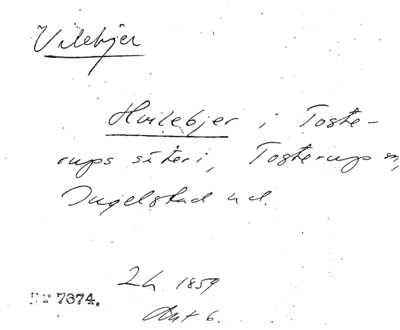 Vilebjer
Hvilebjer i Toste-
rups säteri, Tosterups sn,
Ingelstad hd.
LH 1859
Akt 6.
7674.